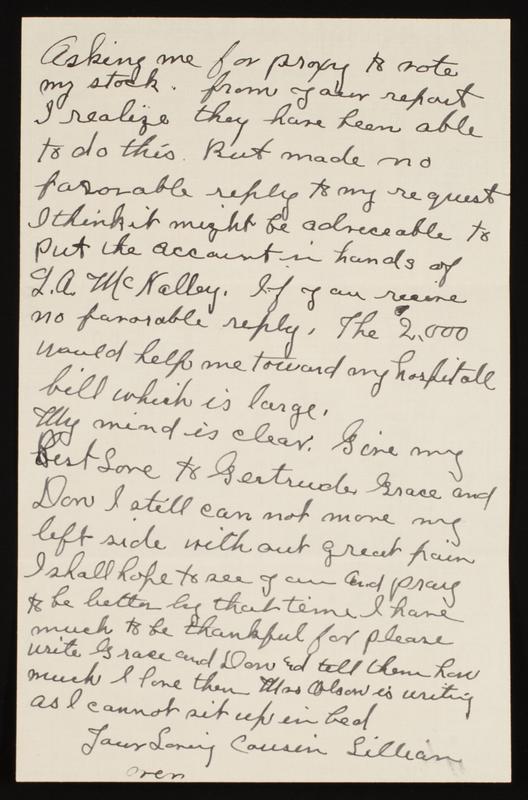 Asking me for proxy to vote
my stock. from your report
I realize they have been able
to do this. But made no
favorable reply to my request
I think it might be adviceable to
put the account in hands of
L.A. McNalley. If you receive
no favorable reply. The 2,000
would help me toward my hospitall
bill which is large.
My mind is clear. Give my
Best Love to Gertrude Grace and
Don I still can not move my
left side without great pain
I shall hope to see you and pray
to be better by that time I have
much to be thankful for please
write Grace and Don and tell them how
much I love them Mrs Olson is writing
as I cannot sit up in bed
Your Loving Cousin Lillian
over